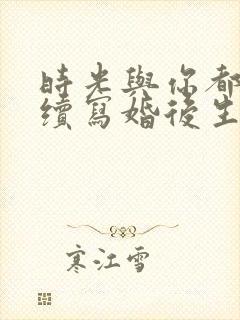 時光與你都
續寫婚後生
寒江雪